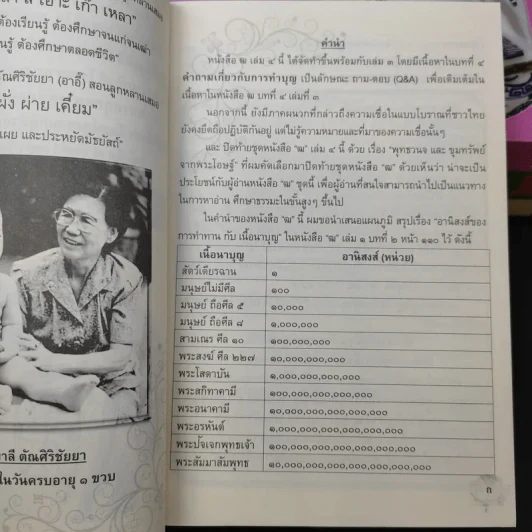 ส เอาะ เก้า เหลา"
ต้องเรียนรู้ ต้องศึกษาจนแก่จนเฒ่า
นรู้ ต้องศึกษาตลอดชีวิต"
ตัณศิริชัยยา (อาอี๊) สอนลูกหลานเสมอ
ผั่ง ผ่าย เคี่ยม"
เผย และประหยัดมัธยัสถ์"
าลี ตัณศิริชัยยา
ในวันครบอายุ ๑ ขวบ
คำนำ
หนังสือ ฒ เล่ม ๔ นี้ ได้จัดทำขึ้นพร้อมกับเล่ม ๓ โดยมีเนื้อหาในบทที่ ๔
คำถามเกี่ยวกับการทำบุญ เป็นลักษณะ ถาม-ตอบ (Q&A) เพื่อเติมเต็มใน
เนื้อหาในหนังสือ ฒ บทที่ ๔ เล่มที่ ๓
นอกจากนี้ ยังมีภาคผนวกที่กล่าวถึงความเชื่อในแบบโบราณที่ชาวไทย
ยังคงยึดถือปฏิบัติกันอยู่ แต่ไม่รู้ความหมายและที่มาของความเชื่อนั้นๆ
และ ปิดท้ายชุดหนังสือ "ฒ" เล่ม ๔ นี้ ด้วย เรื่อง "พุทธวจน และ ขุมทรัพย์
จากพระโอษฐ์" ที่ผมคัดเลือกมาปิดท้ายชุดหนังสือ "ฒ" ด้วยเห็นว่า น่าจะเป็น
ประโยชน์กับผู้อ่านหนังสือ "ฒ" ชุดนี้ เพื่อผู้อ่านที่สนใจสามารถนำไปเป็นแนวทาง
ในการหาอ่าน ศึกษาธรรมะในขั้นสูงๆ ขึ้นไป
ในคำนำของหนังสือ "ฒ" นี้ ผมขอนำเสนอแผนภูมิ สรุปเรื่อง "อานิสงส์ของ
การทำทาน กับ เนื้อนาบุญ" ในหนังสือ "ฒ" เล่ม ๑ บทที่ ๒ หน้า ๑๑๐ ไว้ ดังนี้
เนื้อนาบุญ อานิสงส์ (หน่วย)
สัตว์เดียรฉาน ๑
มนุษย์ไม่มีศีล ๑๐๐
มนุษย์ ถือศีล ๕ ๑๐,๐๐๐
มนุษย์ ถือศีล ๘ ๑,๐๐๐,๐๐๐
สามเณร ศีล ๑๐ ๑๐๐,๐๐๐,๐๐๐
พระสงฆ์ ศีล ๒๒๗ ๑๐,๐๐๐,๐๐๐,๐๐๐
พระโสดาบัน ๑,๐๐๐,๐๐๐,๐๐๐,๐๐๐
พระสกิทาคามี ๑๐๐,๐๐๐,๐๐๐,๐๐๐,๐๐๐
พระอนาคามี ๑๐,๐๐๐,๐๐๐,๐๐๐,๐๐๐,๐๐๐
พระอรหันต์ ๑,๐๐๐,๐๐๐,๐๐๐,๐๐๐,๐๐๐,๐๐๐
พระปัจเจกพุทธเจ้า ๑๐๐,๐๐๐,๐๐๐,๐๐๐,๐๐๐,๐๐๐,๐๐๐
พระสัมมาสัมพุทธ ๑๐,๐๐๐,๐๐๐,๐๐๐,๐๐๐,๐๐๐,๐๐๐,๐๐๐
ก